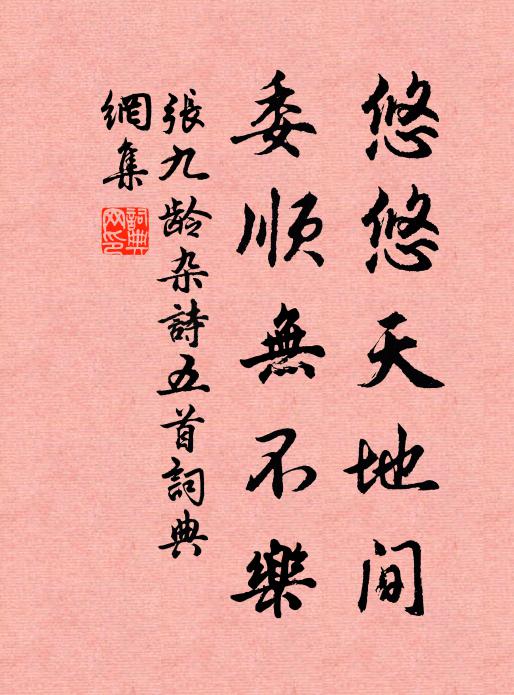 悠悠天地间
委顺無不樂
張九龄杂詩五首詞典
網集
詞典
网印